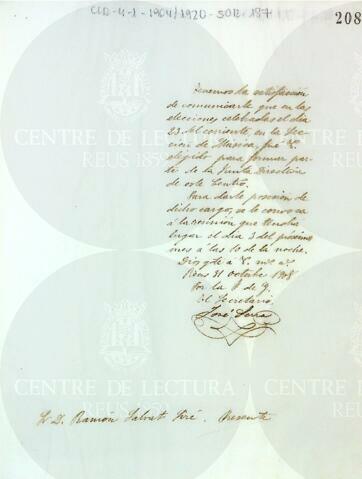 CLD-4-1-1904/1920-SOB-187
208
Tenemos la satisfacción
de comunicarle que en las
elecciones celebradas el dia
23 del corriente, en la Sec-
cion de Música, fué V.
elegido para formar par-
te de la Junta Directiva
de este Centro.
Para darle posesion de
dicho cargo, se le convoca
á la reunión que tendra
lugar el dia 3 del próximo
mes á las 10 de la noche.
Dios gde á V. ms as
Reus 31 octubre 1908
Por la J. de G.
El Secretario
José Serra
Sr. D. Ramón Salvat Piré. Presente
CENTRE DE LECTURA
REUS 1859
CENTRE DE LECTURA
REUS 1859
CENTRE DE LECTURA
REUS 1859
CENTRE DE LECTURA
REUS 1859